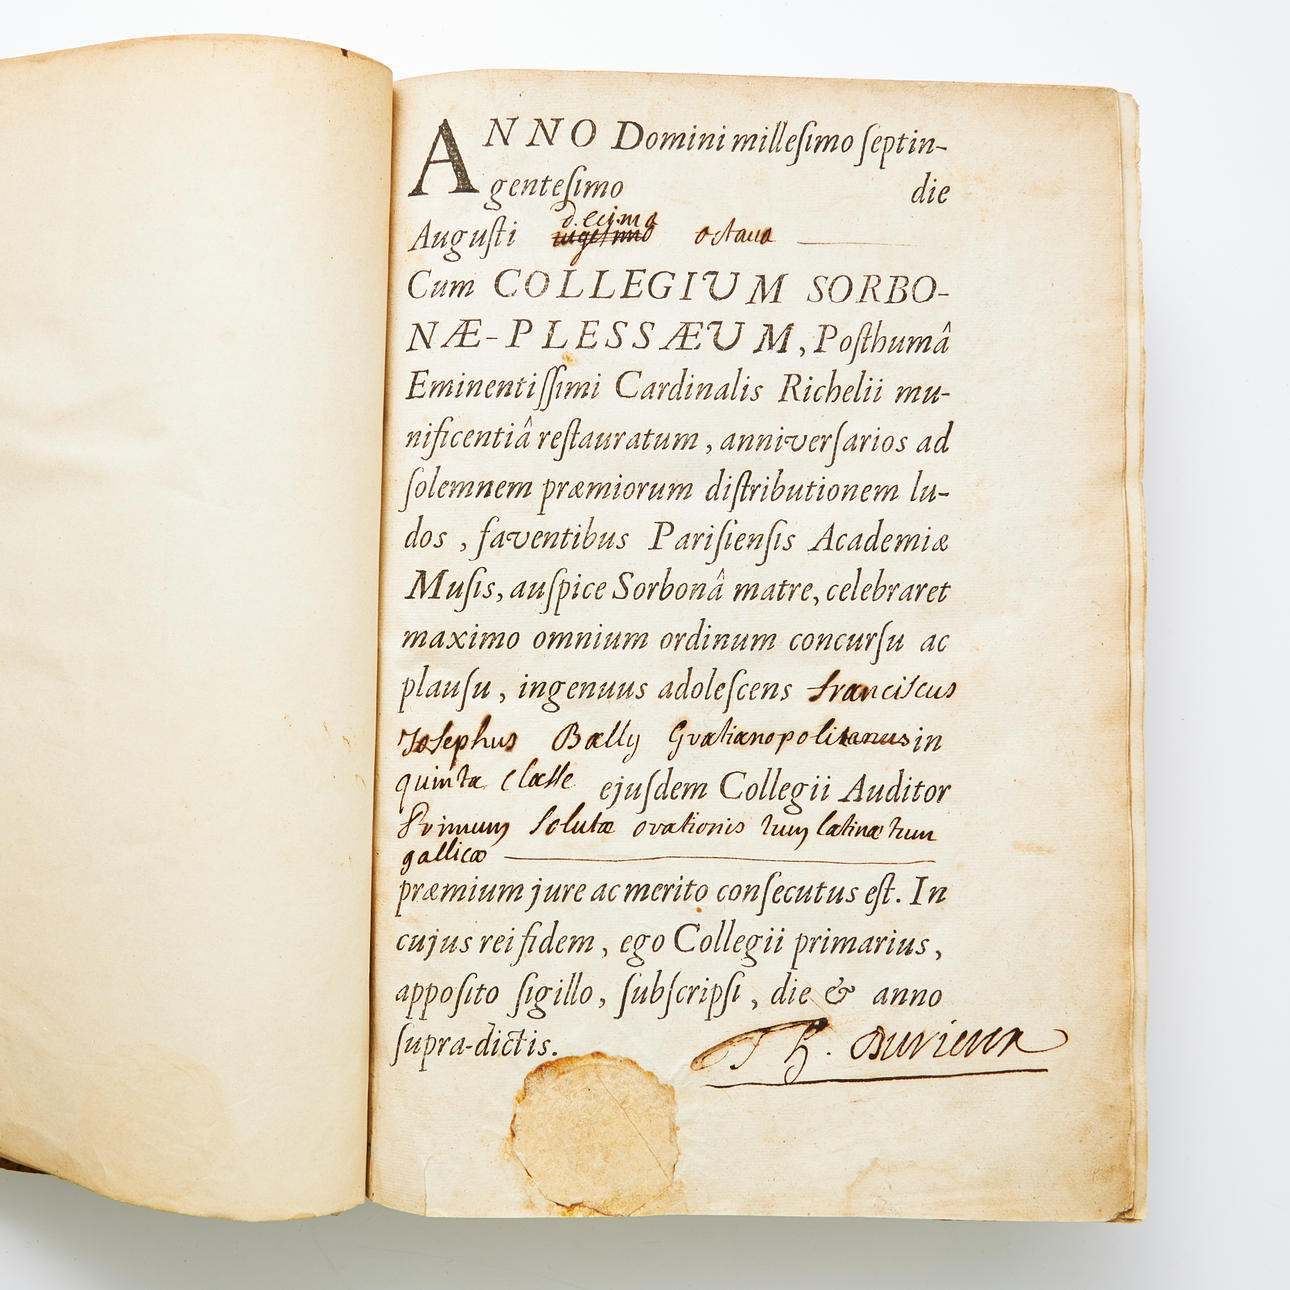 ANNO Domini milleſimo ſeptin-
genteſimo die
Auguſti decima octava
Cum COLLEGIUM SORBO-
NÆ-PLESSÆUM, Poſthumâ
Eminentiſſimi Cardinalis Richelii mu-
nificentiâ reſtauratum, anniverſarios ad
ſolemnem præmiorum diſtributionem lu-
dos, faventibus Pariſienſis Academiæ
Muſis, auſpice Sorbonâ matre, celebraret
maximo omnium ordinum concurſu ac
plauſu, ingenuus adoleſcens Franciſcus
Joſephus Bally Gratianopolitanus in
quinta Claſſe ejuſdem Collegii Auditor
Primum ſolutæ orationis tum latinæ tum
gallicæ
præmium jure ac merito conſecutus eſt. In
cujus rei fidem, ego Collegii primarius,
appoſito ſigillo, ſubſcripſi, die & anno
ſupra-dictis. Durieux